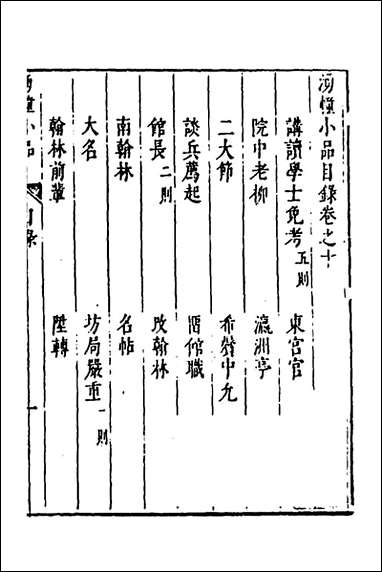 湧幢小品目錄卷之十
講讀學士免考五則 東宮官
院中老柳 瀛洲亭
二大節 希發中允
談兵薦起 留館職
館長二則 改翰林
南翰林 名帖
大名 坊局嚴重一則
翰林前輩 陞轉
湧幢小品 目錄 一